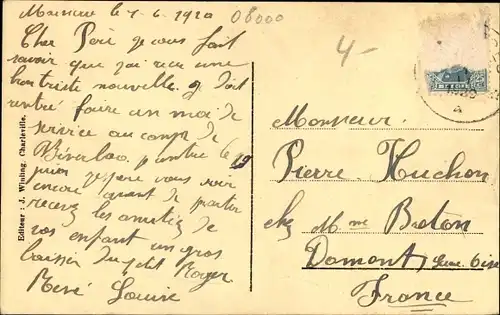 le 1-6-1920 06000
Cher Père je vous fait
savoir que j'ai recu une
bien triste nouvelle. je doit
rentré faire un moi de
service au camp de
je pense vous voir
encore avant de partir
recevez les amitiez de
vos enfant un gros
baisser du ptit Roger
René Louise
Editeur : J. Winling, Charleville.
4-
Monsieur
Pierre Huchon
chez Mme Breton
Domont Seine Oise
France